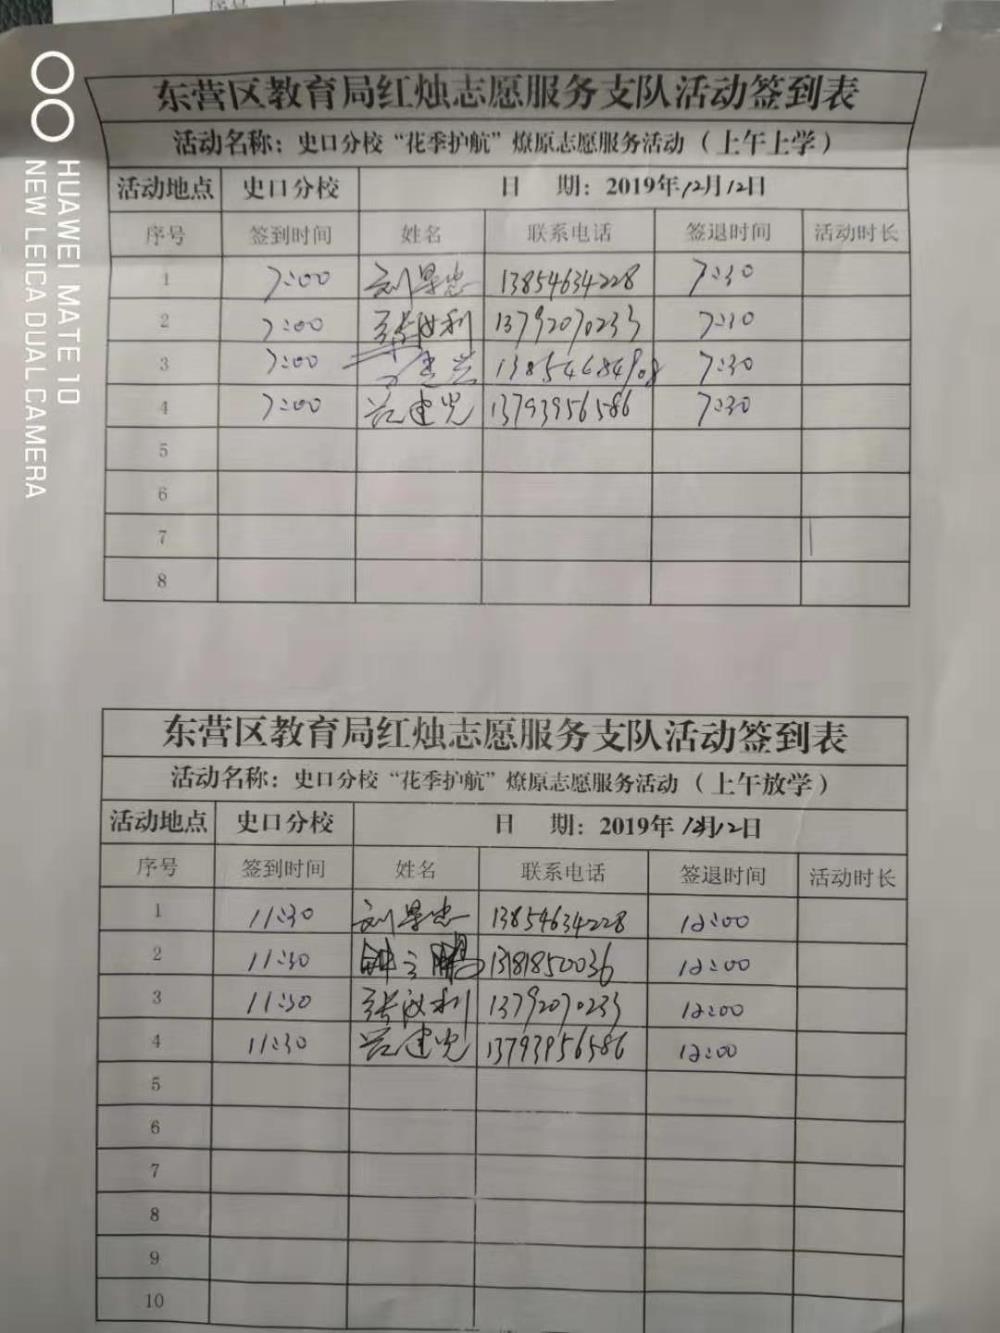 东营区教育局红烛志愿服务支队活动签到表
活动名称：史口分校“花季护航”燎原志愿服务活动（上午上学）
活动地点 史口分校 日 期：2019年12月12日
序号 签到时间 姓名 联系电话 签退时间 活动时长
1 7:00 刘景忠 13854634228 7:30
2 7:00 张汝利 13792070233 7:30
3 7:00 7:30
4 7:00 范建光 13793956586 7:30
5
6
7
8
东营区教育局红烛志愿服务支队活动签到表
活动名称：史口分校“花季护航”燎原志愿服务活动（上午放学）
活动地点 史口分校 日 期：2019年12月12日
序号 签到时间 姓名 联系电话 签退时间 活动时长
1 11:30 刘景忠 13854634228 12:00
2 11:30 13181850036 12:00
3 11:30 张汝利 13792070233 12:00
4 11:30 范建光 13793956586 12:00
5
6
7
8
9
10
HUAWEI MATE 10
NEW LEICA DUAL CAMERA